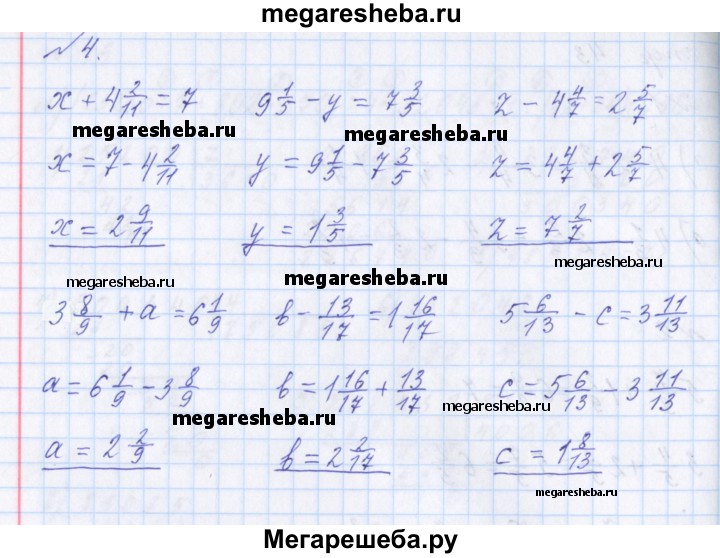 megaresheba.ru
№ 4.
x + 4 2/11 = 7    9 1/5 - y = 7 3/5    z - 4 4/7 = 2 5/7
megaresheba.ru    megaresheba.ru
x = 7 - 4 2/11    y = 9 1/5 - 7 3/5    z = 4 4/7 + 2 5/7
x = 2 9/11    y = 1 3/5    z = 7 2/7
megaresheba.ru    megaresheba.ru    megaresheba.ru
3 8/9 + a = 6 1/9    b - 13/17 = 1 16/17    5 6/13 - c = 3 11/13
a = 6 1/9 - 3 8/9    b = 1 16/17 + 13/17    c = 5 6/13 - 3 11/13
megaresheba.ru    megaresheba.ru
a = 2 2/9    b = 2 2/17    c = 1 8/13
megaresheba.ru
Мегарешеба.ру